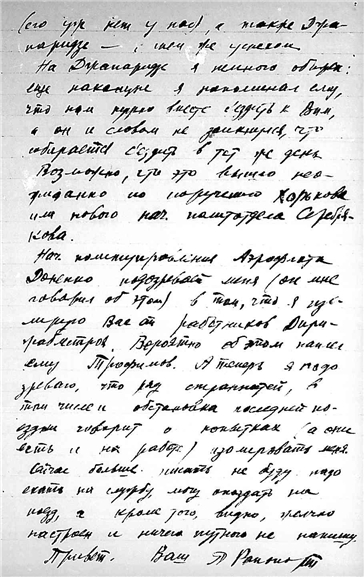 (его уж нет у нас), а также Джа-
паридзе — с тем же успехом.
На Джапаридзе я немного обижен:
еще накануне я напоминал ему,
что нам нужно вместе ездить к Вам,
а он и словом не заикнулся, что
собирается ездить в тот же день.
Возможно, что это вышло нео-
жиданно по поручению Харькова
или нового нач. политотдела Серебря-
кова.
Нач. политуправления Аэрофлота
Доненко подозревает меня (он мне
говорил об этом) в том, что я изо-
лирую Вас от работников Дири-
жаблестроя. Вероятно об этом напис
ему Трофимов. А теперь я подо
зреваю, что ряд странностей, в
том числе и обстановка последней по-
ездки говорит о попытках (а они
есть и на работе) изолировать меня.
Сейчас больше писать не буду: надо
ехать на службу могу опоздать на
поезд, а кроме того, видно, желчно
настроен и ничего путного не напишу.
Привет. Ваш Я Рапопорт